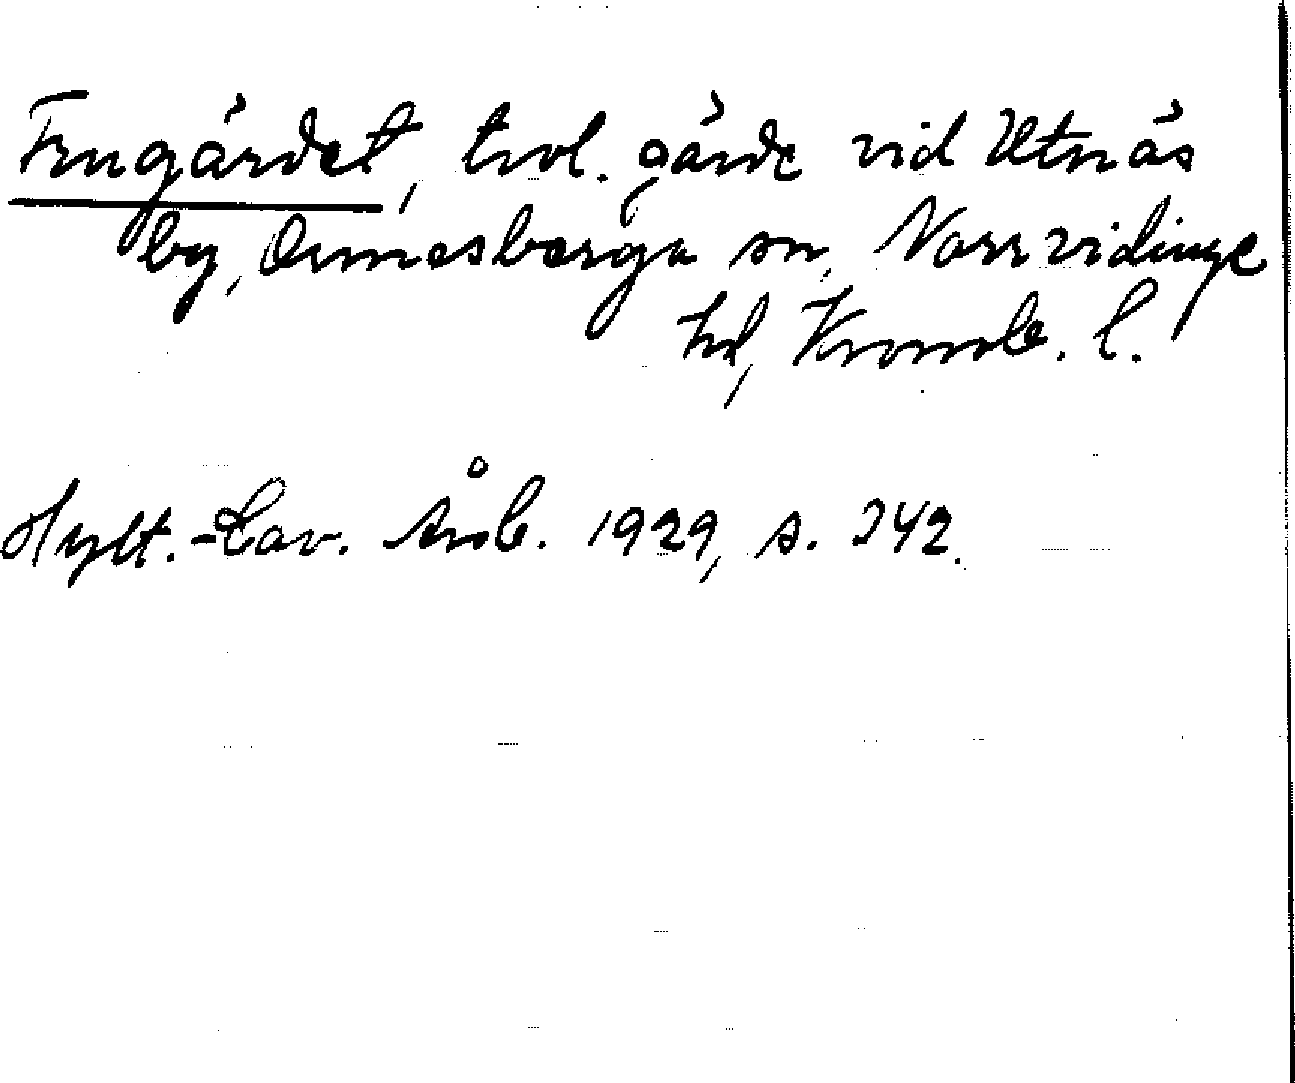 Frugärdet, trol. gärde vid Utnäs
by, Ormesberga sn, Norrvidinge
hd, Kronob. l.
Hylt.-Cav. Årsb. 1929, s. 242.